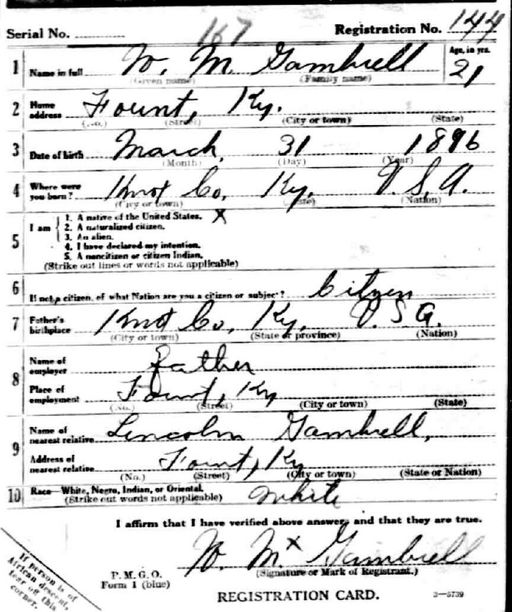 Serial No. 167 Registration No. 144
1 Name in full W. M. Gambrell Age, in yrs. 21
(Given name) (Family name)
2 Home address Fount, Ky.
(No.) (Street) (City or town) (State)
3 Date of birth March, 31 1896
(Month) (Day) (Year)
4 Where were you born? Knot Co, Ky, U.S.A.
(City or town) (State) (Nation)
5 I am
1. A native of the United States. X
2. A naturalized citizen.
3. An alien.
4. I have declared my intention.
5. A noncitizen or citizen Indian.
(Strike out lines or words not applicable)
6 If not a citizen, of what Nation are you a citizen or subject? Citizen
7 Father's birthplace Knot Co, Ky, U.S.A.
(City or town) (State or province) (Nation)
8 Name of employer father
Place of employment Fount, Ky
(No.) (Street) (City or town) (State)
9 Name of nearest relative Lincoln Gambrell,
Address of nearest relative Fount, Ky
(No.) (Street) (City or town) (State or Nation)
10 Race—White, Negro, Indian, or Oriental. White
(Strike out words not applicable)
I affirm that I have verified above answers and that they are true.
W. M. X Gambrell
(Signature or Mark of Registrant.)
P. M. G. O.
Form 1 (blue)
REGISTRATION CARD. 3—5739
If person is of
African descent,
tear off this
corner.